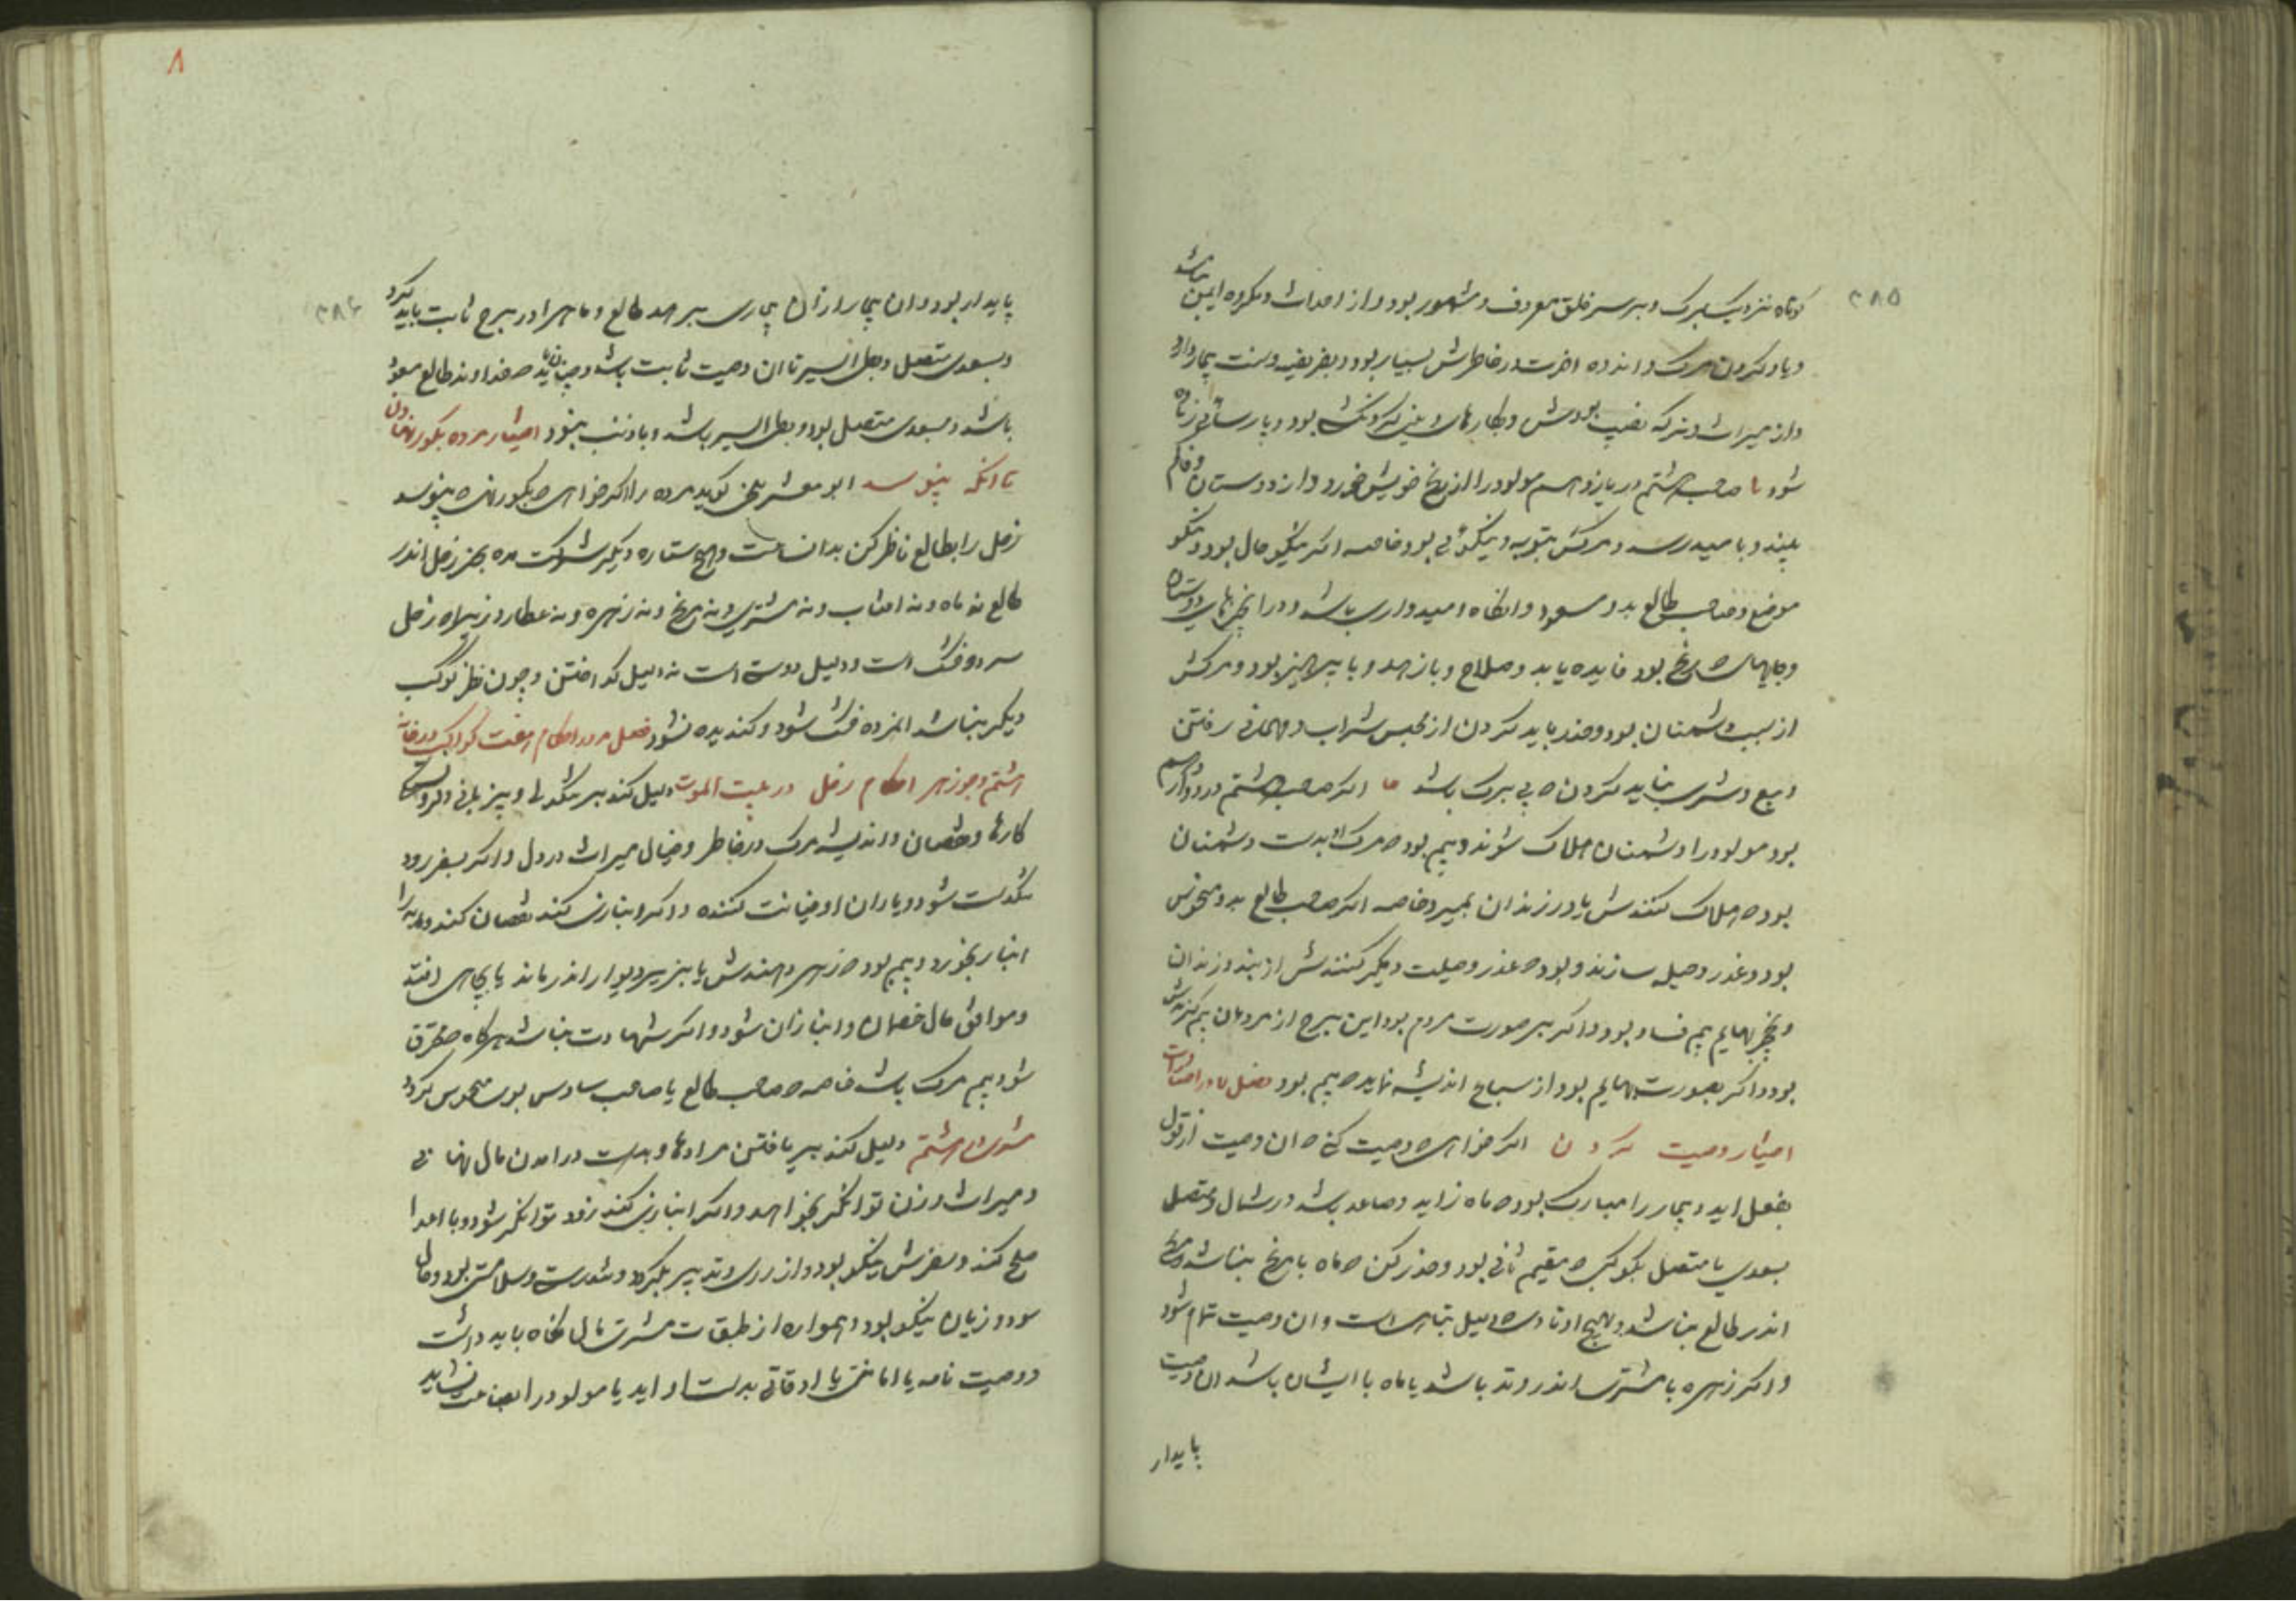 ۳۸۵
کوتاه نزدیک بزرگ و بر سر خلق معروف و مشهور بود و از احداث و مکروه ایمن باشد
و یاد کردن مرگ و اندوه اخرت در خاطرش بسیار بود و بفریضه و سنت
و از میراث و ترکه نصیب بودش و بکارهای بود و پارسائی
شود یا صاحب هشتم در یازدهم مولود را از رنج خویش خورد و از دوستان
بیند و بامید رسد و مرگش بتوبه و نیکوئی بود خاصه اکر نیکو حال بود و نیکو
موضع و صاحب طالع بدو مسعود و انکاه امیدواری باشد و در
و بجایهای رنج بود فایده یابد و صلاح و با زهد و با پرهیز بود و مرگش
از سبب دشمنان بود و حذر باید کردن از مجلس شراب و مهمانی رفتن
و بیع و شری نباید کردن که بی برک باشد اکر صاحب هشتم در دوازدهم
بود مولود را دشمنان هلاک شوند و بیم بود که مرک او بدست دشمنان
بود که هلاک کنندش یا در زندان بمیرد خاصه اکر صاحب طالع بدو منحوس
بود و غدر و حیله سازند و بود که بغدر و حیلت و مکر کنندش از بند و زندان
بهایم بیم فساد بود و اکر بر صورت مردم بود این برج از مردمان بیم
بود و اکر بصورت بهایم بود از سباع اندیشه نماید که بیم بود فصل
اختیار وصیت کردن اکر خواهی که وصیت کنی که ان وصیت از قول
بفعل اید و بیمار را مبارک بود که ماه زاید و صاعد باشد در شمال و متصل
بسعدی یا متصل بکوکبی که مقیم ثانی بود و حذر کن که ماه با مریخ نباشد و مریخ
اندر طالع نباشد و بهیچ اوتاد که دلیل تباهی است و ان وصیت تمام شود
و اکر زهره با مشتری اندر وتد باشد یا ماه با ایشان باشد ان وصیت
پایدار
۸
۳۸۶
پایدار بود و ان بیمار از ان بیماری برهد طالع و ماه را در برج ثابت باید کرد
و بسعدی متصل و بطی السیر تا ان وصیت ثابت باشد و چنان باید که خداوند طالع
باشد و بسعدی متصل بود و بطی السیر باشد و با ذنب نبود اختیار مرده بکور نهادن
تا انکه نپوسد ابو معشر بلخی کوید مرده را اکر خواهی که بکور نهی که نپوسد
زحل را بطالع ناظر کن بدان ساعت و هیچ ستاره دیکر شرکت مده بجز زحل اندر
طالع نه ماه و نه افتاب و نه مشتری و نه مریخ و نه زهره و نه عطارد زیرا که زحل
سرد و خشک است و دلیل است نه دلیل کداختن و چون نظر کوکب
دیکر نباشد المرده خشک شود و کندیده نشود فصل در احکام هفت کواکب در خانه
هشتم و جوزهر احکام زحل در بیت الموت دلیل کند بر تنکدلی و
کارها و نقصان و اندیشه مرک در خاطر و خیال میراث در دل و اکر بسفر رود
تنکدست شود و یاران او خیانت کننده و اکر انبازی کند نقصان کند
انباز بخورد و بیم بود که زهر دهندش یا بزیر دیوار اندر ماند یا بچاهی افتد
و موافق مال خصمان و انبازان شود و اکر شهادت نباشد هرکاه محترق
شود بیم مرک باشد خاصه که صاحب طالع یا صاحب سادس بود منحوس کردد
مشتری در هشتم دلیل کند بر یافتن مرادها و بدست درامدن مال نهانی
و میراث و زن توانکر بخواهد و اکر انبازی کند زود توانکر شود و با اعدا
صلح کند و سفرش نیکو بود و از رای و تدبیر بود و مال
سود و زیان نیکو بود و همواره از طبقات نکاه باید داشت
و وصیت نامه یا امانتی یا اوقافی بدست او اید یا مولود را بضاعت نشاید